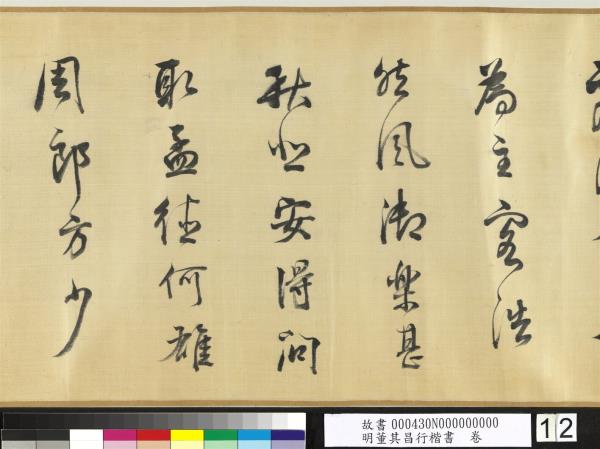 為主客浩
然風御樂甚
秋悲安得問
取孟德何雄
周郎方少
故書 000430N000000000
明董其昌行楷書 卷
12